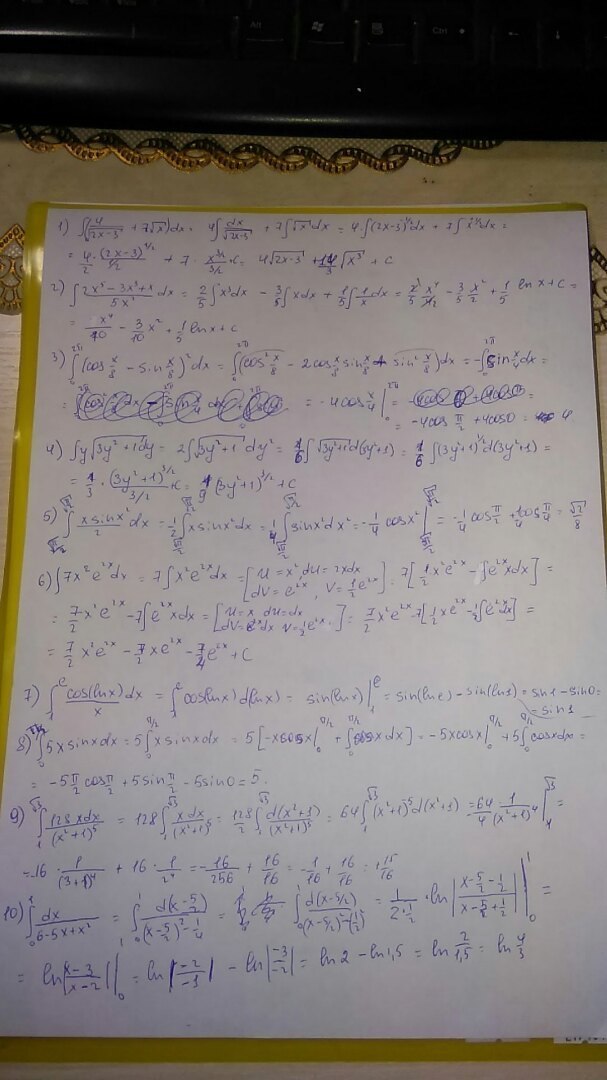 Alt
Ctrl
1) ∫(4/√(2x-3) + 7√x)dx = 4∫dx/√(2x-3) + 7∫√x dx = 4·∫(2x-3)^(-1/2)dx + 7∫x^(1/2)dx =
= 4/2·(2x-3)^(1/2)/(1/2) + 7·x^(3/2)/(3/2)+c = 4√(2x-3) + 14/3 √x³ + C
2) ∫(2x⁵-3x³+x)/(5x²) dx = 2/5∫x³dx - 3/5∫xdx + 1/5∫1/x dx = 2/5 x⁴/4 - 3/5 x²/2 + 1/5 ln x + C =
= x⁴/10 - 3/10 x² + 1/5 ln x + C
3) ∫₀^2π(cos x/8 - sin x/8)²dx = ∫₀^2π(cos² x/8 - 2cos x/8 sin x/8 + sin² x/8)dx = -∫₀^2π sin x/4 dx =
= -4cos x/4 |₀^2π =
= -4cos π/2 + 4cos0 = 4
4) ∫y√(3y²+1)dy = 2∫√(3y²+1) dy² = 1/6∫√(3y²+1) d(3y²+1) = 1/6∫(3y²+1)^(1/2)d(3y²+1) =
= 1/3·(3y²+1)^(3/2)/(3/2)+c = (3y²+1)^(3/2) + C
5) ∫ x sin x²/2 dx = 1/2∫x sin x²dx = 1/4∫sin x² dx² = -1/4 cos x² | = -1/4 cos π/2 + 1/4 cos π/4 = √2/8
6) ∫7x²e^2x dx = 7∫x²e^2x dx = [u = x², du = 2xdx
dV = e^2x, V = 1/2 e^2x] = 7[1/2 x²e^2x - ∫e^2x xdx] =
= 7/2 x²e^2x - 7∫e^2x xdx = [u = x du = dx
dV = e^2x dx V = 1/2 e^2x] = 7/2 x²e^2x - 7[1/2 xe^2x - 1/2∫e^2x dx] =
= 7/2 x²e^2x - 7/2 xe^2x - 7/4 e^2x + C
7) ∫₁^e cos(lnx)/x dx = ∫₁^e cos(lnx)d(lnx) = sin(lnx)|₁^e = sin(lne) - sin(ln1) = sin1 - sin0 =
= sin1
8) ∫₀^π/2 5x sinx dx = 5∫₀^π/2 x sinx dx = 5[-xcosx|₀^π/2 + ∫₀^π/2 cosx dx] = -5xcosx|₀^π/2 + 5∫₀^π/2 cosxdx =
= -5π/2 cos π/2 + 5sin π/2 - 5sin0 = 5.
9) ∫₁^√3 128xdx/(x²+1)⁵ = 128∫₁^√3 xdx/(x²+1)⁵ = 128/2∫₁^√3 d(x²+1)/(x²+1)⁵ = 64∫₁^√3 (x²+1)⁵d(x²+1) = -64/4 1/(x²+1)⁴|₁^√3 =
= -16·1/(3+1)⁴ + 16·1/2⁴ = -16/256 + 16/16 = -1/16 + 16/16 = +15/16
10) ∫₀¹ dx/(6-5x+x²) = ∫₀¹ d(x-5/2)/((x-5/2)²-1/4) = ∫₀¹ d(x-5/2)/((x-5/2)²-(1/2)²) = 1/(2·1/2)·ln|(x-5/2-1/2)/(x-5/2+1/2)||₀¹ =
= ln|(x-3)/(x-2)||₀¹ = ln|-2/-1| - ln|-3/-2| = ln2 - ln1,5 = ln 2/1,5 = ln 4/3